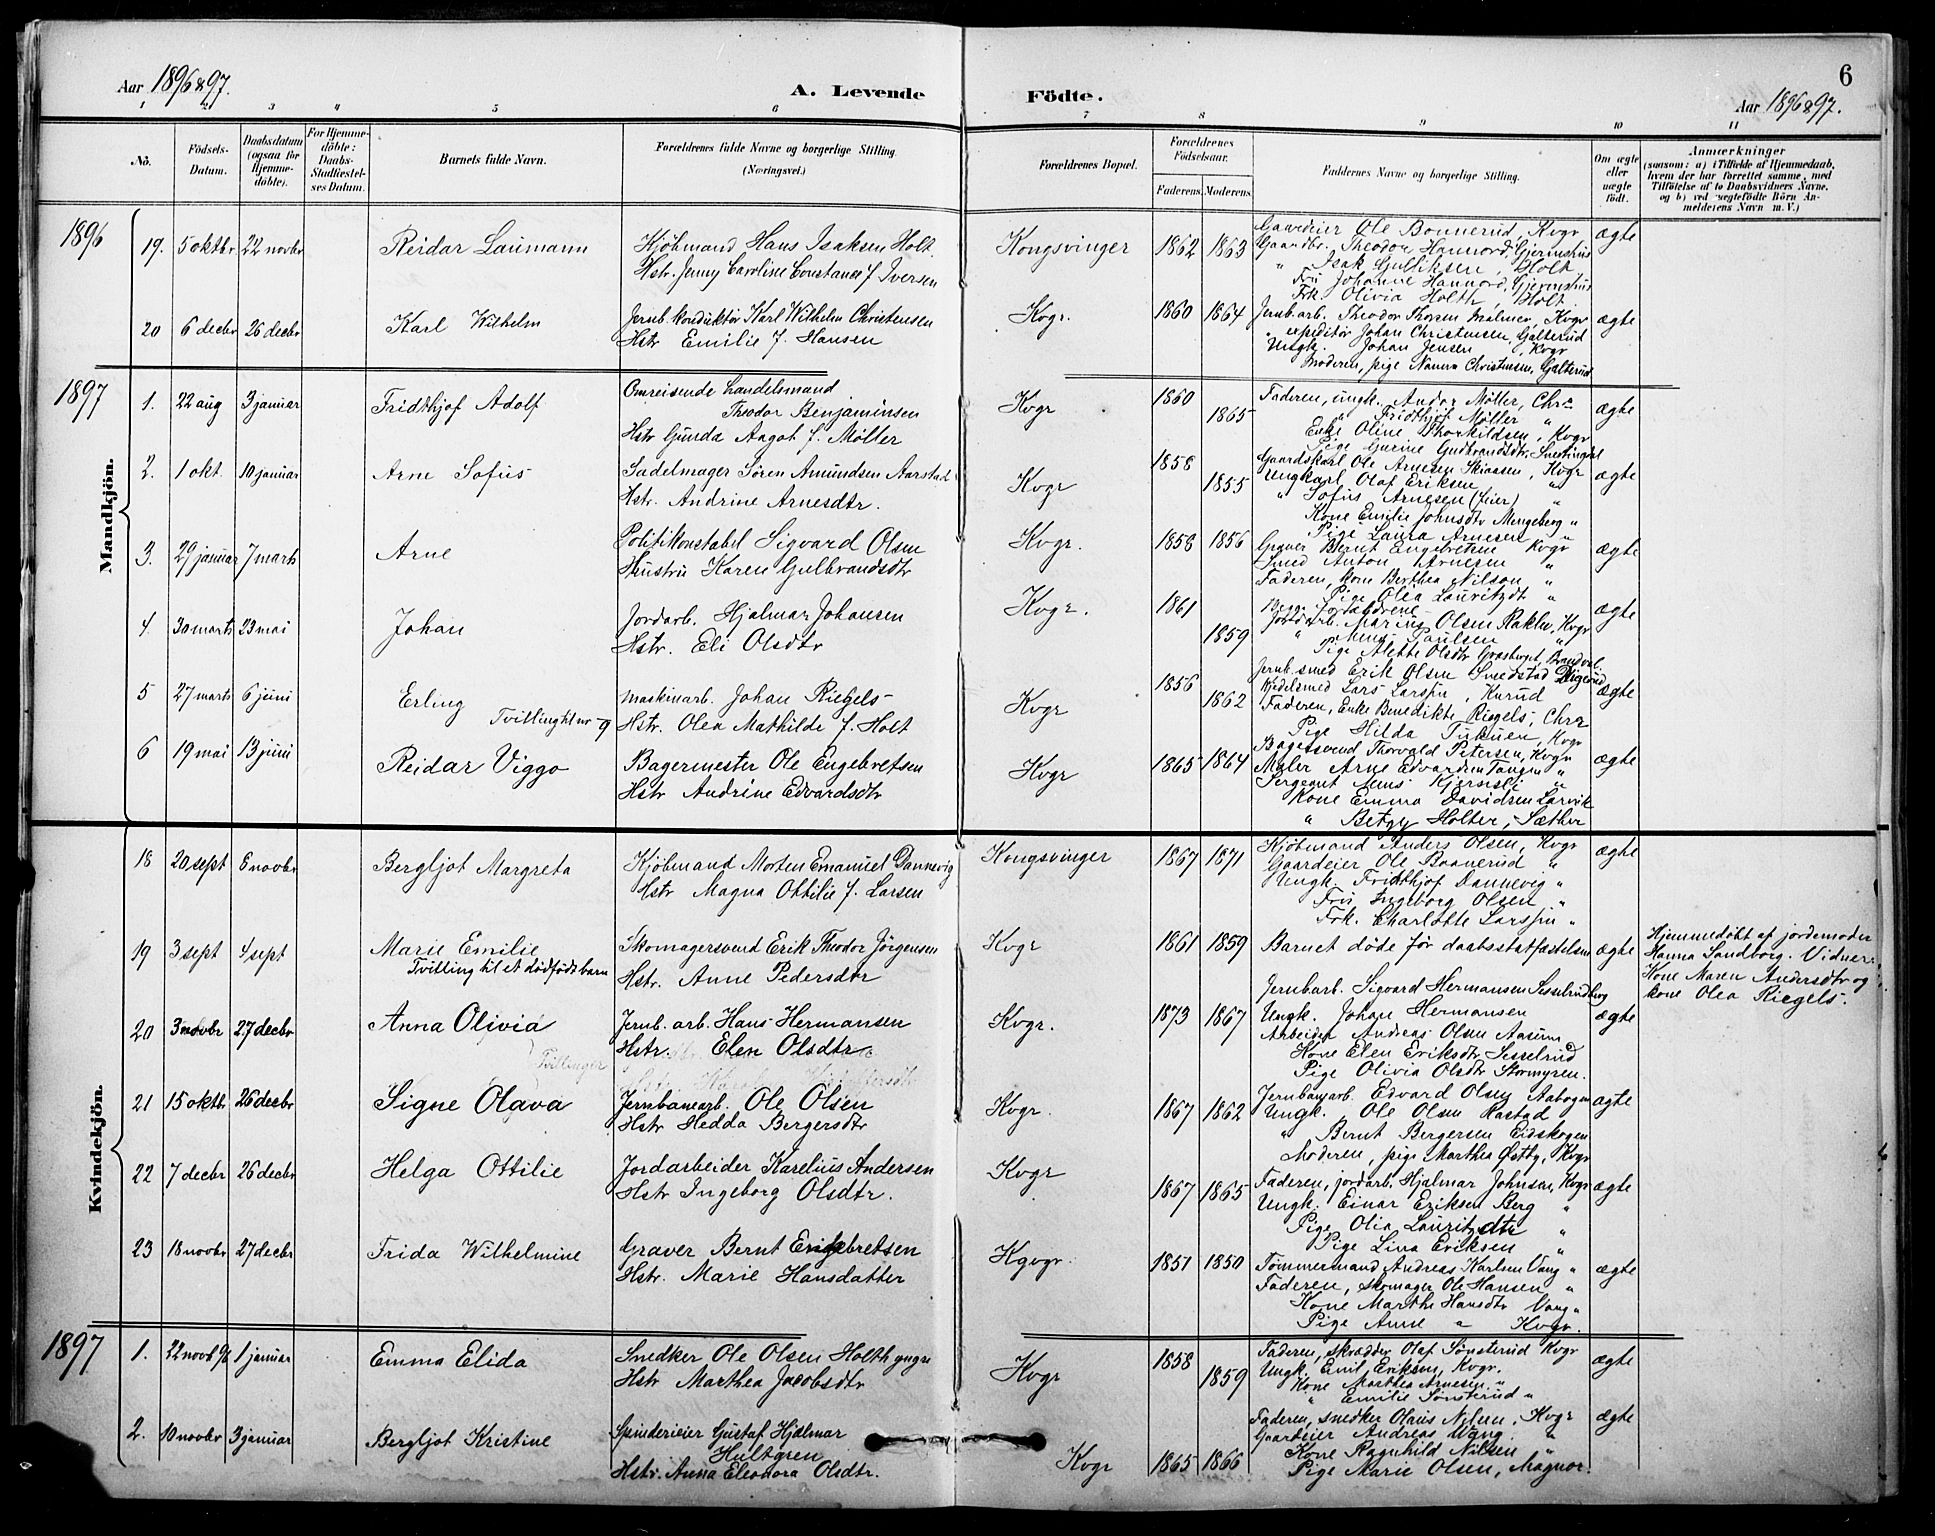 Aar 1896 & 97.
A. Levende
Födte.
6
Aar 1896 & 97.
1 2 3 4 5 6 7 8 9 10 11
No.
Födsels-Datum.
Daabsdatum (ogsaa for Hjemme-döbte).
For Hjemme-döbte: Daabs-Stadfæstel-ses Datum.
Barnets fulde Navn.
Forældrenes fulde Navne og borgerlige Stilling.
(Næringsvei.)
Forældrenes Bopæl.
Forældrenes Födselsaar.
Faderens. Moderens.
Faddernes Navne og borgerlige Stilling.
Om ægte eller uægte födt.
Anmærkninger
(saasom: a) i Tilfælde af Hjemmedaab,
hvem der har forrettet samme, med
Tilföielse af to Daabsvidners Navne.
og b) ved uægtefödte Börn An-
melderens Navn m. V.)
Mandkjön.
1896
19. 5 oktbr 22 novbr Reidar Laumann
Kjöbmand Hans Isaksen Holt.
Hstr. Jenny Caroline Constance f. Iversen
Kongsvinger 1862 1863
Gaardeier Ole Bonnerud, Kvgr
Gaardbr. Theodor Hannord, Gjermshus
" Isak Gulliksen, Holt
Fru Johanne Hannord, Gjermshus
Frk. Olivia Holth, Holt
ægte
20 6 decbr 26 decbr Karl Wilhelm
Jernb. konduktör Karl Wilhelm Christensen
Hstr Emilie f. Hansen
Kvgr. 1860 1864
Jernb.arb. Theodor Thorsen Malmer, Kvgr
" expeditör Johan Christensen, Galterud
Ungk. Johan Jensen, Kvgr
Moderen, pige Nanna Christensen, Galterud
ægte
1897
1. 22 aug 3 januar Fridthjof Adolf
Omreisende handelsmand
Theodor Benjaminsen
Hstr Gunda Angot f. Møller
Kvgr 1860 1865
Faderen, ungk. Andor Møller, Chra
" Fridthjof Møller "
Enke Oline Thorkildsen, Kvgr
Pige Gurine Gudbrandsdtr,
ægte
2. 1 okt. 10 januar Arne Sofus
Sadelmager Sören Amundsen Aarstad
Hstr. Andrine Arnesdtr.
Kvgr 1858 1855
Gaardskarl Ole Arnesen Skiaasen, Kvgr
Ungkarl Olaf Eriksen "
" Sofus Arnesen (feier) "
Kone Emilie Johnsdtr Mengeberg "
Pige Laura Arnesen "
ægte
3. 29 januar 7 marts Arne
Politikonstabel Sigvard Olsen
Hustru Karen Gulbrandsdtr
Kvgr. 1858 1856
Graver Bernt Engebretsen Kvgr
Smed Anton Arnesen "
Faderen, kone Berthea Nilson "
Pige Olea Lauritzdt "
ægte
4. 30 marts 23 mai Johan
Jordarb. Hjalmar Johansen
Hstr. Eli Olsdtr
Kvgr. 1861 1859
Begge forældrene
Jordarb. Marius Olsen Rakke, Kvgr
" Paulsen "
Pige Alette Olsdtr Graaberget, Brandval.
ægte
5 27 marts 6 juni Erling
Tvilling til nr 9
Maskinarb. Johan Riegels
Hstr. Olea Mathilde f. Holt
Kvgr 1856 1862
Jernb. smed Erik Olsen Smedstad Digerud
Kjedelsmed Lars Larsen, Kurud
Faderen, Enke Benedikte Riegels, Chra
Pige Hilda, Kvgr
ægte
6 19 mai 13 juni Reidar Viggo
Bagermester Ole Engebretsen
Hstr Andrine Edvardsdtr
Kvgr 1865 1864
Bagersvend Thorvald Petersen, Kvgr
Maler Arne Edvardsen Tangen "
Sergeant Jens "
Kone Emma Davidsen Larvik
" Betzy Holter, Sæther
ægte
Kvindekjön.
18 20 sept 8 novbr Bergljot Margreta
Kjöbmand Morten Emanuel Dannevig
Hstr Magna Ottilie f. Larsen
Kongsvinger 1867 1871
Kjöbmand Anders Olsen, Kvgr
Gaardeier Ole Baanerud "
Ungk. Fridthjof Dannevig "
Fru Ingeborg Olsen "
Frk. Charlotte Larsen "
ægte
19 3 sept 4 sept Marie Emilie
Tvilling til et dödfödt barn
Skomagersvend Erik Theodor Jörgensen
Hstr. Anne Pedersdtr
Kvgr 1861 1859
Barnet döde för daabsstatfæstelsen
ægte
Hjemmedöbt af jordemoder
Hanna Sandborg. Vidner:
Kone Maren Andersdtr og
kone Olea Riegels.
20 3 novbr 27 decbr Anna Olivia
Jernb. arb. Hans Hermansen
Hstr. Elen Olsdtr
Kvgr. 1873 1867
Jernbarb. Sigvard Hermansen Sesselrudberg
Ungk. Johan Hermansen
Arbeider Andreas Olsen Aasum
Kone Elen Eriksdtr Sesselrud
Pige Olivia Olsdtr Stormyren.
ægte
21 15 oktbr 26 decbr Signe Olava
Jernbanearb. Ole Olsen
Hstr Hedda Bergersdtr
Kvgr. 1867 1862
Jernbanearb. Edvard Olsen Aabogen
Ungk. Ole Olsen Rastad
" Bernt Bergersen Eidskogen
Moderen, pige Marthea Østby, Kvgr
ægte
22 7 decbr 26 decbr Helga Ottilie
Jordarbeider Karelius Andersen
Hstr Ingeborg Olsdtr.
Kvgr 1867 1865
Faderen, jordarb. Hjalmar Johnsen, Kvgr
Ungk. Einar Eriksen Berg "
Pige Olia Lauritzdtr "
Pige Lina Eriksen "
ægte
23 18 novbr 27 decbr Frida Wilhelmine
Graver Bernt Engebretsen
Hstr. Marie Hansdatter
Kgvgr. 1851 1850
Tömmermand Andreas Karlsen Vang "
Faderen, skomager Ole Hansen "
Kone Marthe Hansdtr Vang "
Pige Anne " Kvgr.
ægte
1897
1. 22 novb 96 1 januar Emma Elida
Snedker Ole Olsen Holth yngre
Hstr Marthea Jacobsdtr
Kvgr 1858 1859
Faderen, skrædder Olaf Sönsterud Kvgr
Ungk. Emil Eriksen, Kvgr.
Kone Marthea Arnesen "
" Emilie Sönsterud "
ægte
2. 10 novbr 3 januar Bergljot Kristine
Spinderieier Gustaf Hjalmar
Hultgren
Hstr. Anna Eleonora Olsdtr.
Kvgr 1865 1866
Faderen, snedker Olaus Nilsen, Kvgr
Gaardeier Andreas Wang "
Kone Ragnhild Nilsen "
Pige Marie Olsen, Magnor.
ægte